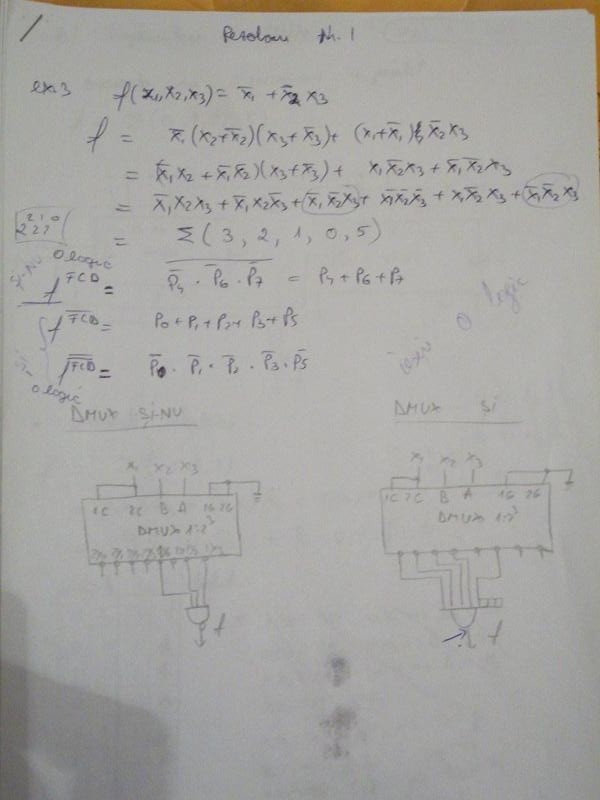 ex.3 f(x₁,x₂,x₃) = x̄₁ + x̄₂ x₃
f = x̄₁(x₂+x̄₂)(x₃+x̄₃) + (x₁+x̄₁) x̄₂x₃
= (x̄₁x₂ + x̄₁x̄₂)(x₃+x̄₃) + x₁x̄₂x₃ + x̄₁x̄₂x₃
= x̄₁x₂x₃ + x̄₁x₂x̄₃ + x̄₁x̄₂x₃ + x̄₁x̄₂x̄₃ + x₁x̄₂x₃ + x̄₁x̄₂x₃
2 1 0
= Σ(3, 2, 1, 0, 5)
0 logic
ȘI-NU
f FCD = P̄₄ · P̄₆ · P̄₇ = P₄ + P₆ + P₇
f FCD = P₀ + P₁ + P₂ + P₃ + P₅
f FCD = P̄₀ · P̄₁ · P̄₂ · P̄₃ · P̄₅
ȘI
0 logic
0 logic
DMUX ȘI-NU
DMUX ȘI
x₁ x₂ x₃
1C 2C B A 1G 2G
DMUX 1:2³
f
x₁ x₂ x₃
1C 2C B A 1G 2G
DMUX 1:2³
f